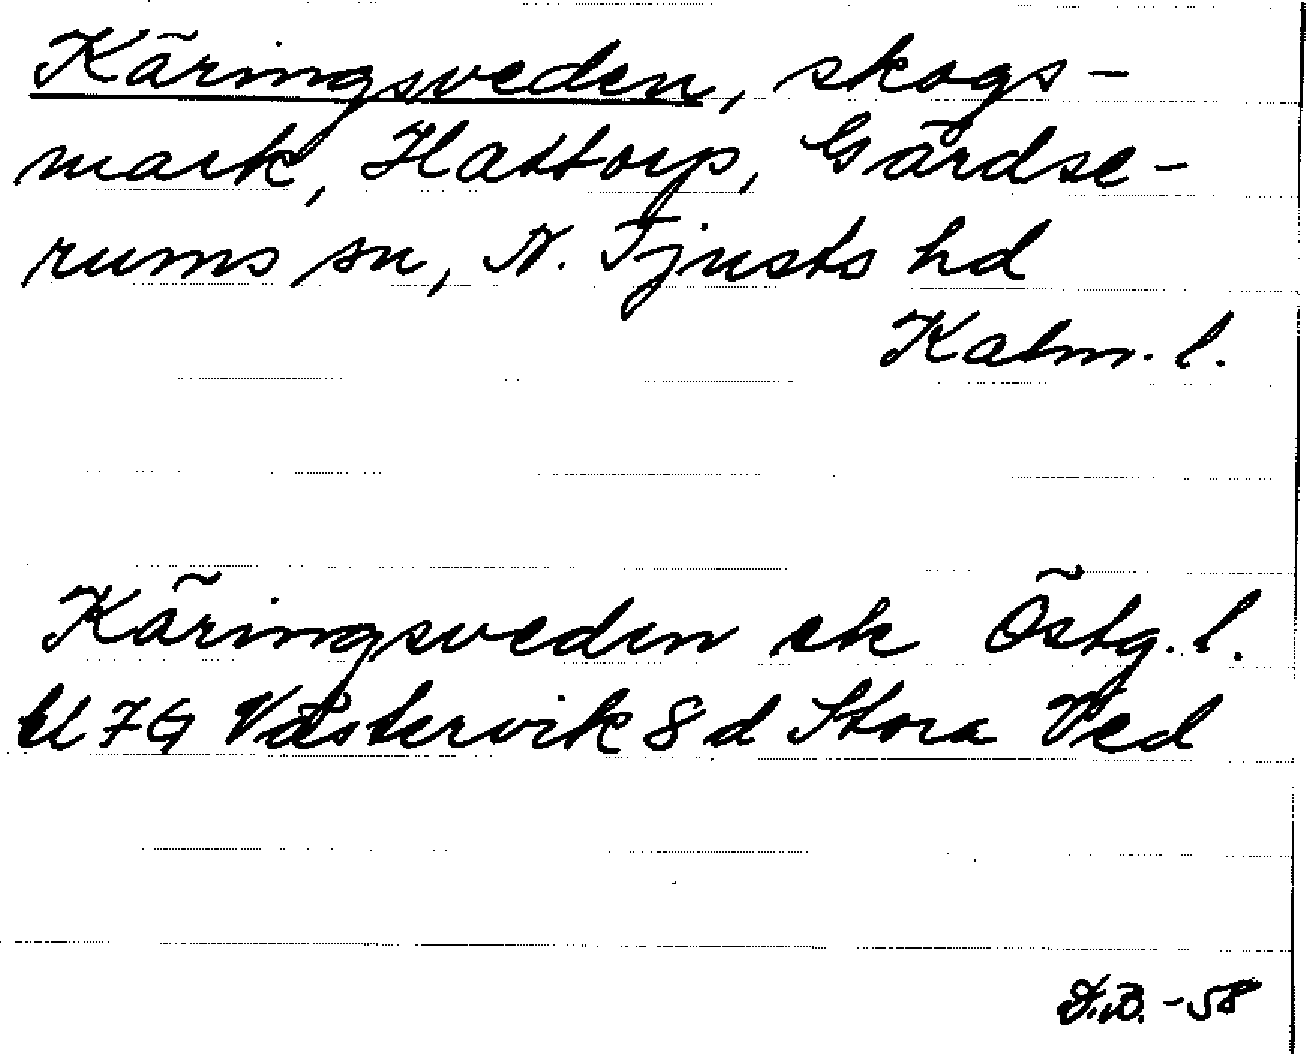 Käringsveden, skogs-
mark, Hattorp, Gärdse-
rums sn, N. Tjusts hd
Kalm. l.
Käringsveden ek Östg. l.
bl 7G Västervik 8 d Stora Ved
D.B. -58